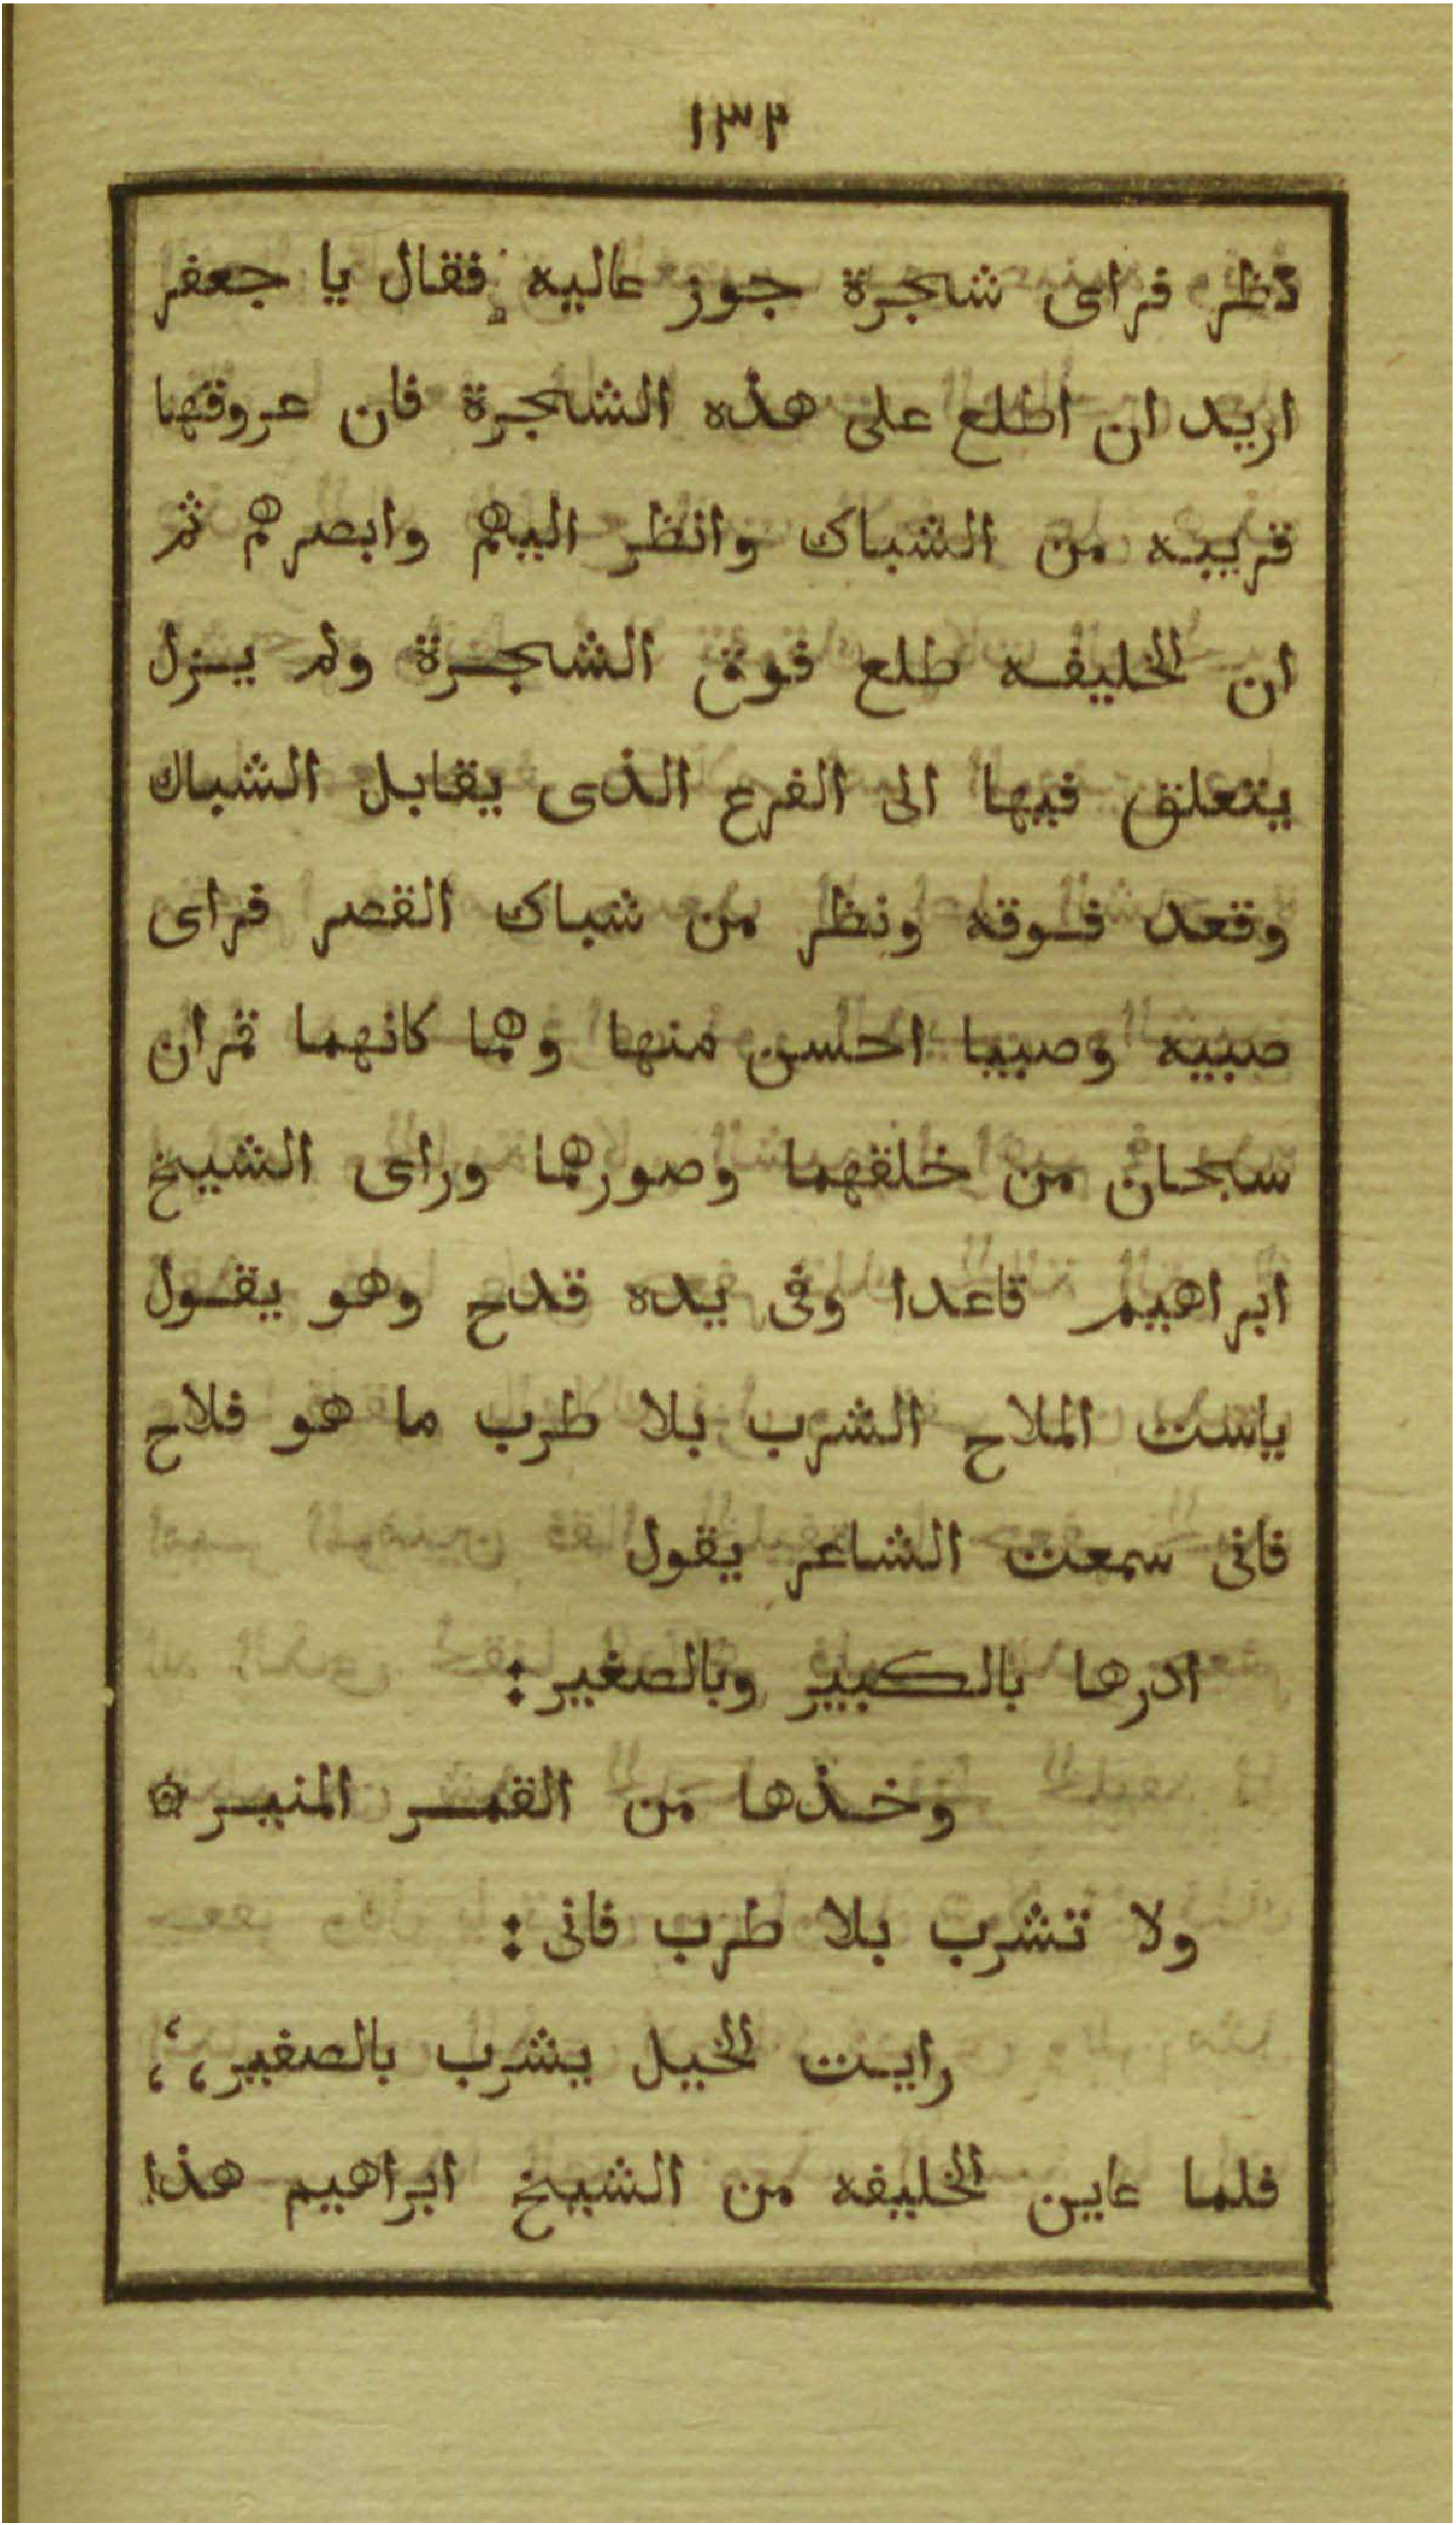 ١٣٢
نظر فراى شجرة جوز عاليه فقال يا جعفر
اريد ان اطلع على هذه الشجرة فان عروقها
قريبه من الشباك وانظر اليهم وابصرهم ثم
ان الخليفه طلع فوق الشجرة ولم يزل
يتعلق فيها الى الفرع الذى يقابل الشباك
وقعد فوقه ونظر من شباك القصر فراى
صبيه وصبيا احسن منها وهما كانهما قمران
سبحان من خلقهما وصورهما وراى الشيخ
ابراهيم قاعدا وفى يده قدح وهو يقول
ياست الملاح الشرب بلا طرب ما هو فلاح
فانى سمعت الشاعر يقول
ادرها بالكبير وبالصغير:
وخذها من القمر المنير۞
ولا تشرب بلا طرب فانى:
رايت الخيل يشرب بالصفير،؛
فلما عاين الخليفه من الشيخ ابراهيم هذا